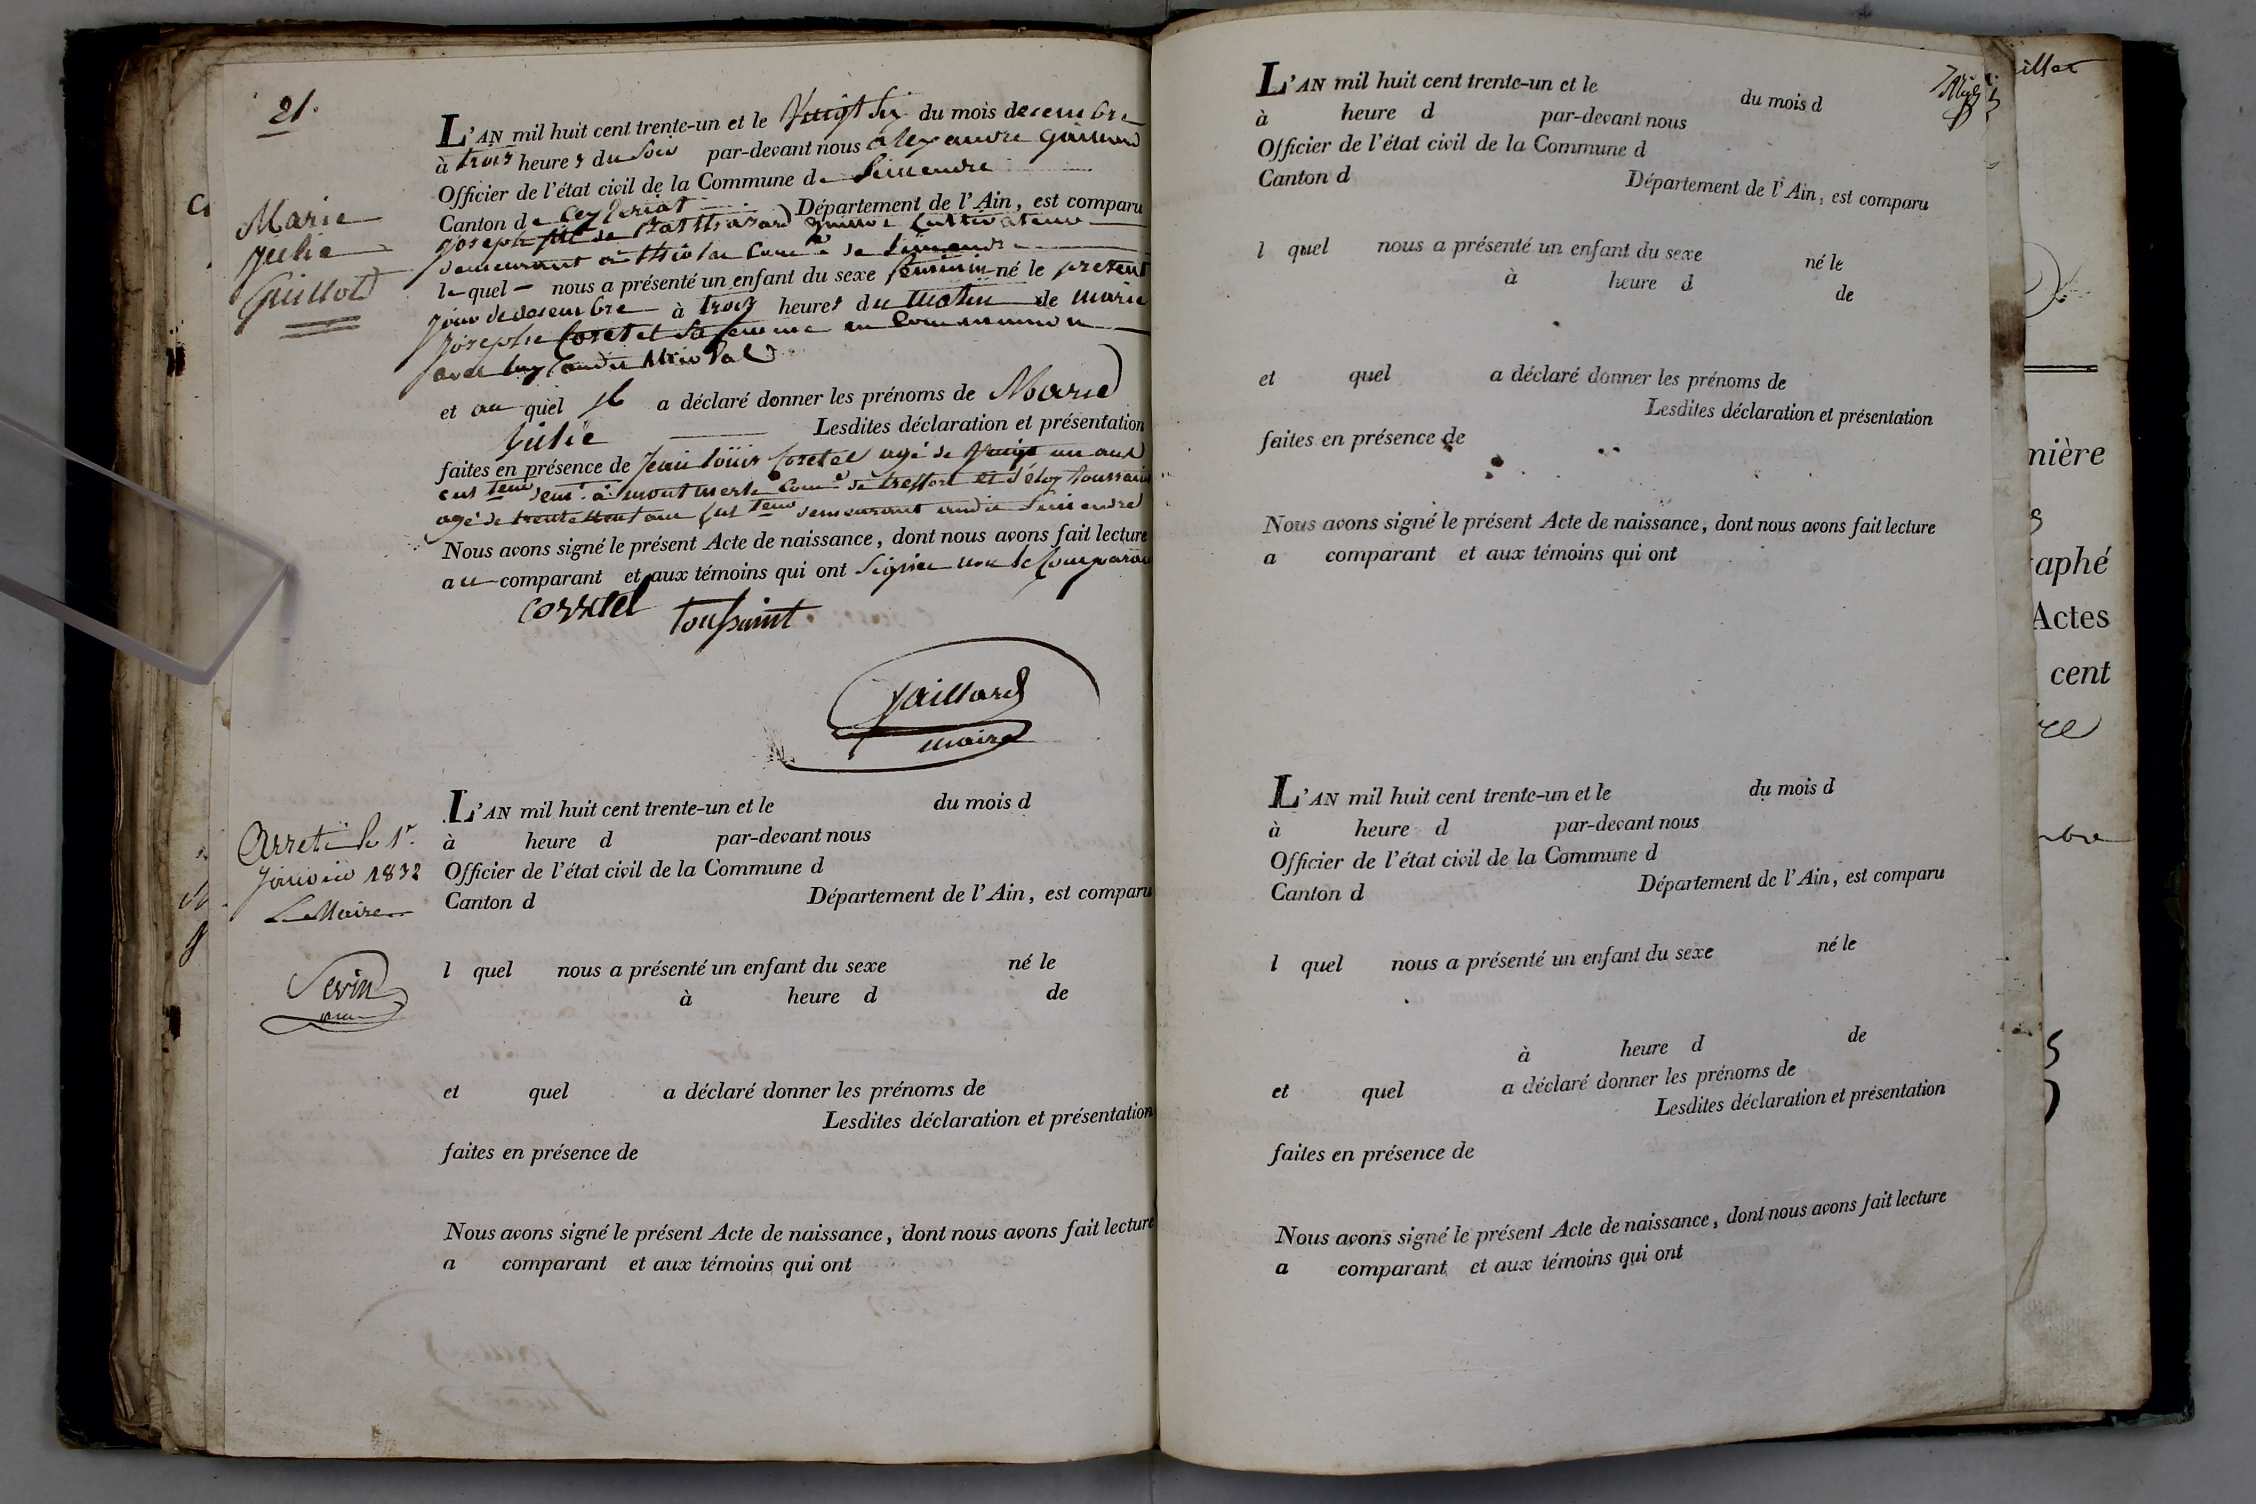 21.
Marie
Julie
Guillot
L'AN mil huit cent trente-un et le Vingt six du mois decembre
à trois heures du soir par-devant nous alexandre gaillard
Officier de l'état civil de la Commune de Simandre
Canton de Ceyzeriat Département de l'Ain, est comparu
joseph fils de Balthazard Cultivateur
demeurant à de Simandre
lequel nous a présenté un enfant du sexe feminin né le present
jour de decembre à trois heures du matin de marie
josephe Coretel sa femme en
avec luy audit
et auquel il a déclaré donner les prénoms de Marie
Julie Lesdites déclaration et présentation
faites en présence de jean louis Coretel agé de Vingt un ans
cultteur demt à montmerle comne de treffort et d'éloy toussaint
agé de trente ans cultteur demeurant audit Simandre
Nous avons signé le présent Acte de naissance, dont nous avons fait lecture
au comparant et aux témoins qui ont signés non le Comparant
corretel toussaint
gaillard
maire
L'AN mil huit cent trente-un et le du mois d
à heure d par-devant nous
Officier de l'état civil de la Commune d
Canton d Département de l'Ain, est comparu
l quel nous a présenté un enfant du sexe né le
à heure d de
et quel a déclaré donner les prénoms de
Lesdites déclaration et présentation
faites en présence de
Nous avons signé le présent Acte de naissance, dont nous avons fait lecture
a comparant et aux témoins qui ont
Arreté le 1r.
Janvier 1832
Le Maire
Sevin
L'AN mil huit cent trente-un et le du mois d
à heure d par-devant nous
Officier de l'état civil de la Commune d
Canton d Département de l'Ain, est comparu
l quel nous a présenté un enfant du sexe né le
à heure d de
et quel a déclaré donner les prénoms de
Lesdites déclaration et présentation
faites en présence de
Nous avons signé le présent Acte de naissance, dont nous avons fait lecture
a comparant et aux témoins qui ont
L'AN mil huit cent trente-un et le du mois d
à heure d par-devant nous
Officier de l'état civil de la Commune d
Canton d Département de l'Ain, est comparu
l quel nous a présenté un enfant du sexe né le
à heure d de
et quel a déclaré donner les prénoms de
Lesdites déclaration et présentation
faites en présence de
Nous avons signé le présent Acte de naissance, dont nous avons fait lecture
a comparant et aux témoins qui ont
illet
mière
aphé
Actes
cent